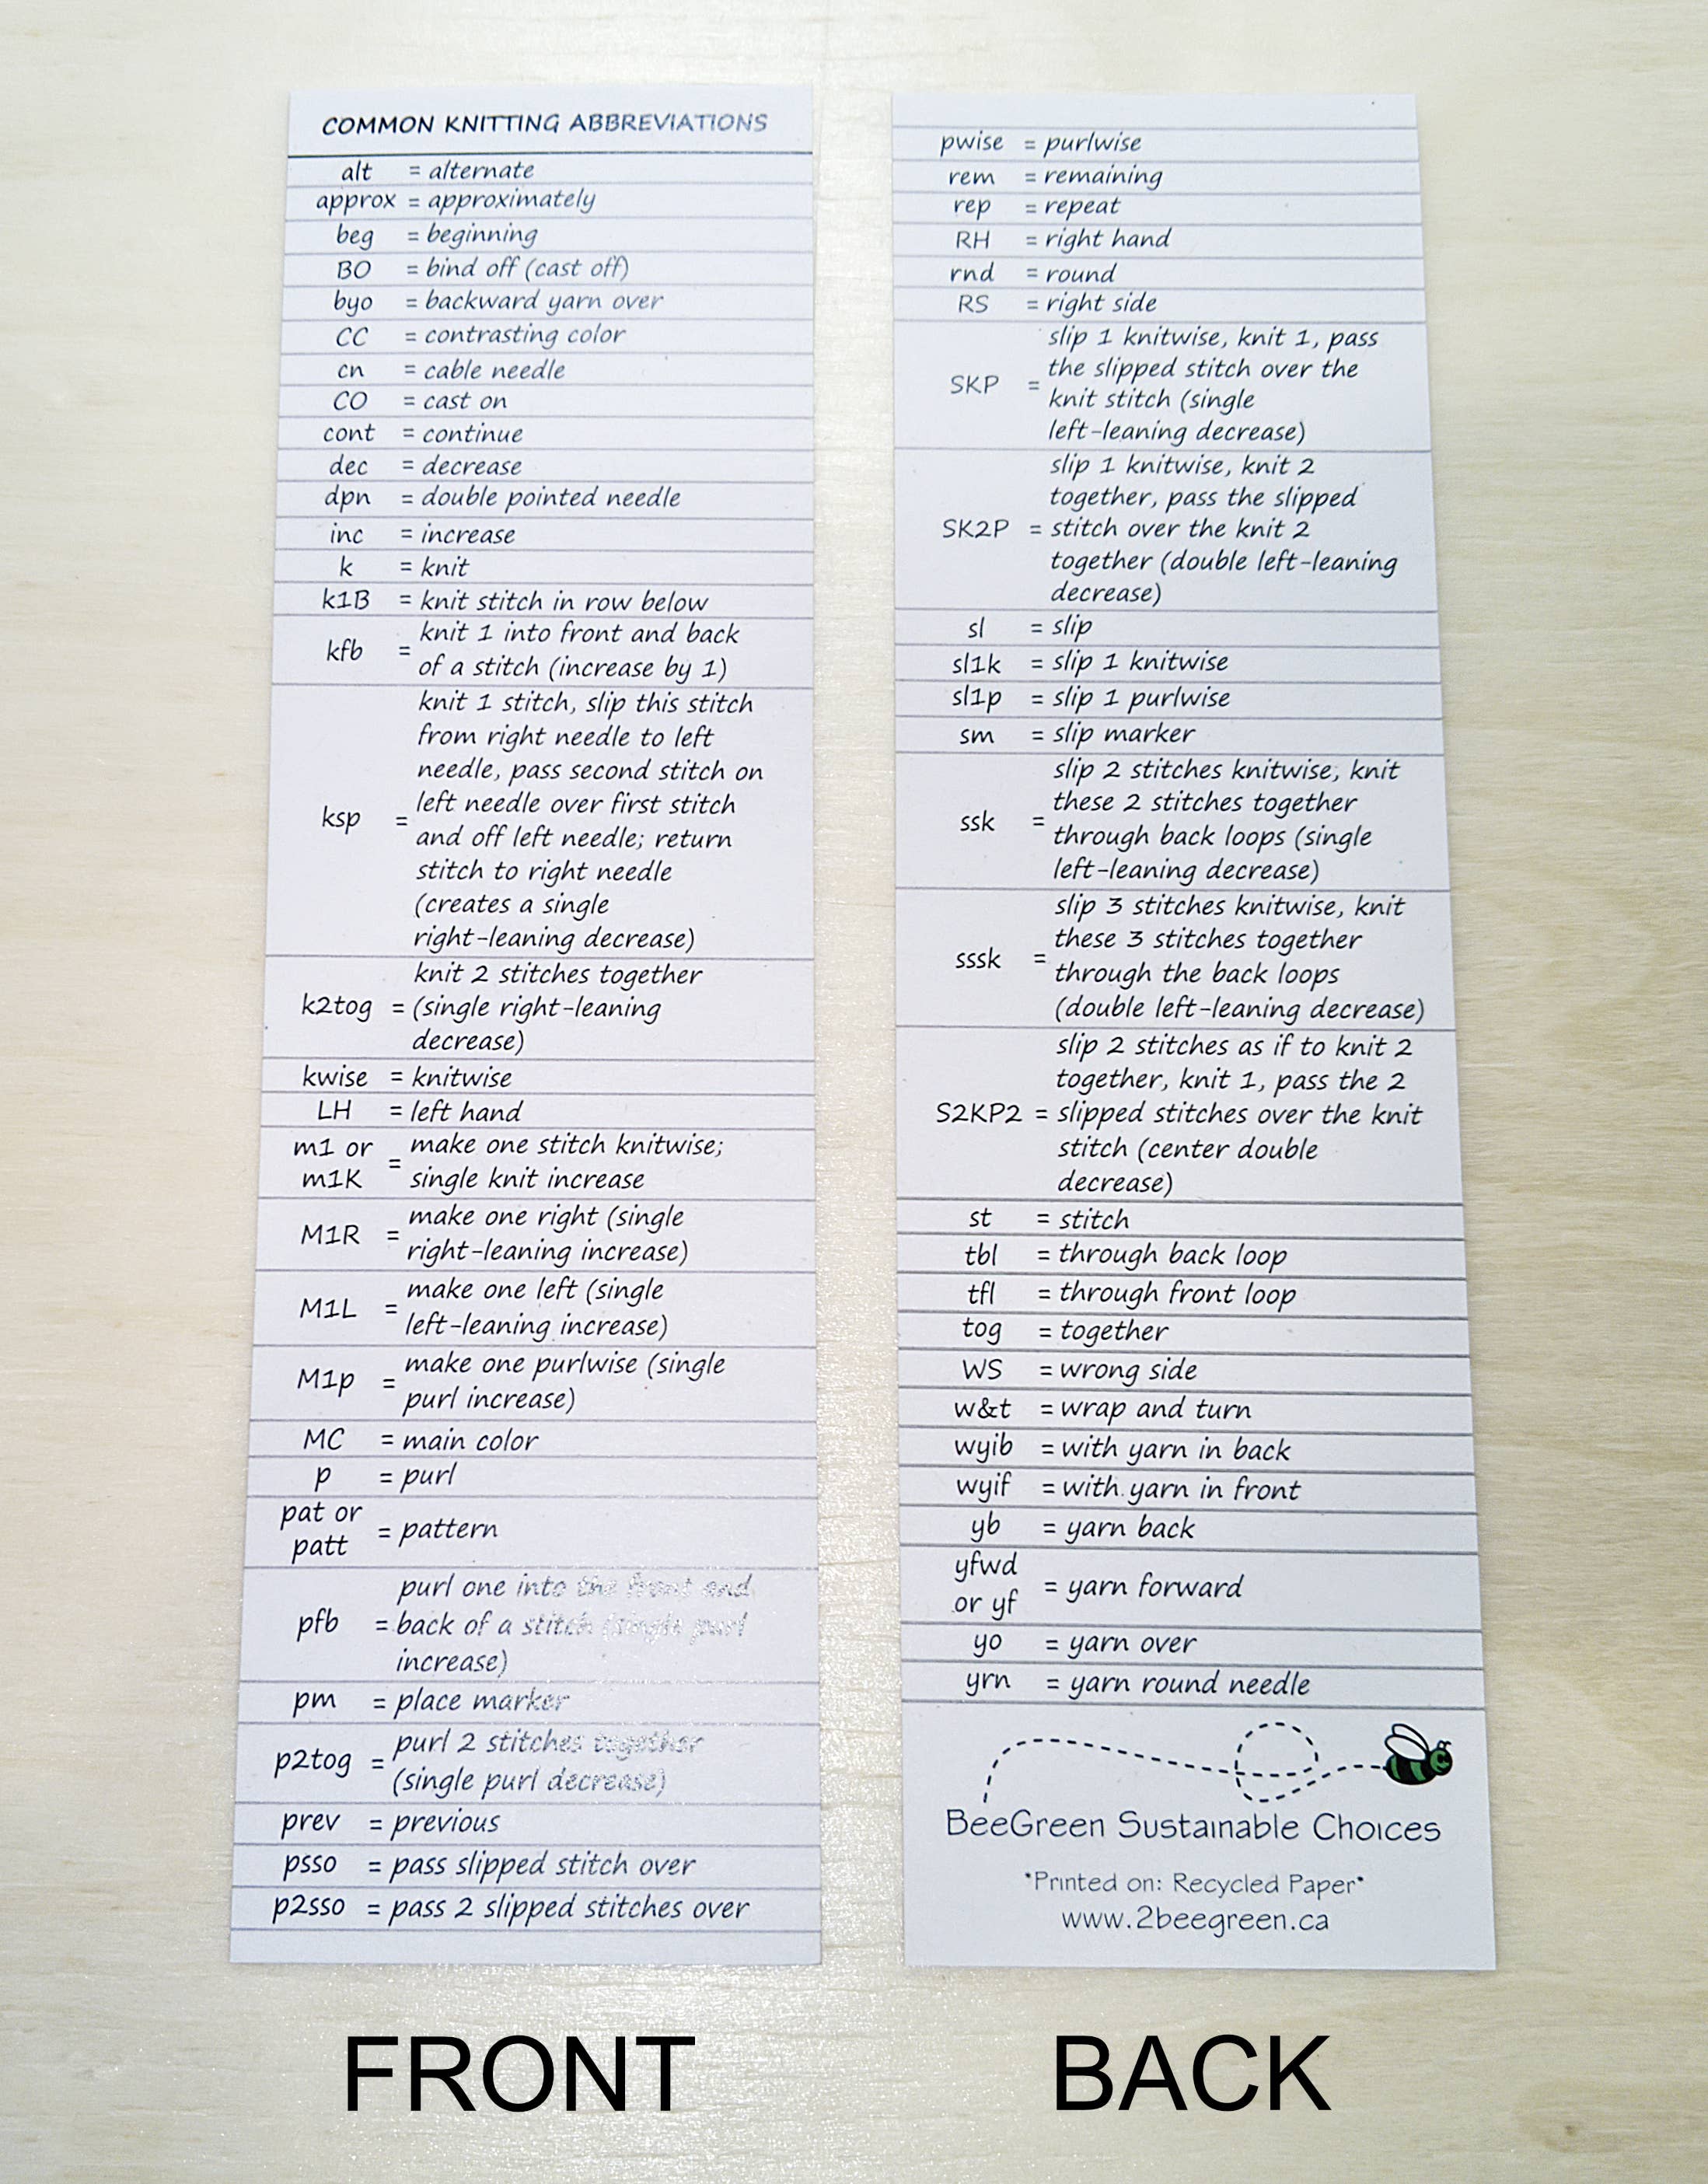 COMMON KNITTING ABBREVIATIONS
alt = alternate
approx = approximately
beg = beginning
BO = bind off (cast off)
byo = backward yarn over
CC = contrasting color
cn = cable needle
CO = cast on
cont = continue
dec = decrease
dpn = double pointed needle
inc = increase
k = knit
k1B = knit stitch in row below
kfb = knit 1 into front and back
of a stitch (increase by 1)
knit 1 stitch, slip this stitch
from right needle to left
needle, pass second stitch on
ksp = left needle over first stitch
and off left needle; return
stitch to right needle
(creates a single
right-leaning decrease)
knit 2 stitches together
k2tog = (single right-leaning
decrease)
kwise = knitwise
LH = left hand
m1 or = make one stitch knitwise;
m1K single knit increase
M1R = make one right (single
right-leaning increase)
M1L = make one left (single
left-leaning increase)
M1p = make one purlwise (single
purl increase)
MC = main color
p = purl
pat or
patt = pattern
purl one into the front and
pfb = back of a stitch (single purl
increase)
pm = place marker
p2tog = purl 2 stitches together
(single purl decrease)
prev = previous
psso = pass slipped stitch over
p2sso = pass 2 slipped stitches over
pwise = purlwise
rem = remaining
rep = repeat
RH = right hand
rnd = round
RS = right side
slip 1 knitwise, knit 1, pass
the slipped stitch over the
SKP = knit stitch (single
left-leaning decrease)
slip 1 knitwise, knit 2
together, pass the slipped
SK2P = stitch over the knit 2
together (double left-leaning
decrease)
sl = slip
sl1k = slip 1 knitwise
sl1p = slip 1 purlwise
sm = slip marker
slip 2 stitches knitwise, knit
these 2 stitches together
ssk = through back loops (single
left-leaning decrease)
slip 3 stitches knitwise, knit
these 3 stitches together
sssk = through the back loops
(double left-leaning decrease)
slip 2 stitches as if to knit 2
together, knit 1, pass the 2
S2KP2 = slipped stitches over the knit
stitch (center double
decrease)
st = stitch
tbl = through back loop
tfl = through front loop
tog = together
WS = wrong side
w&t = wrap and turn
wyib = with yarn in back
wyif = with yarn in front
yb = yarn back
yfwd
or yf = yarn forward
yo = yarn over
yrn = yarn round needle
BeeGreen Sustainable Choices
*Printed on: Recycled Paper*
www.2beegreen.ca
FRONT
BACK